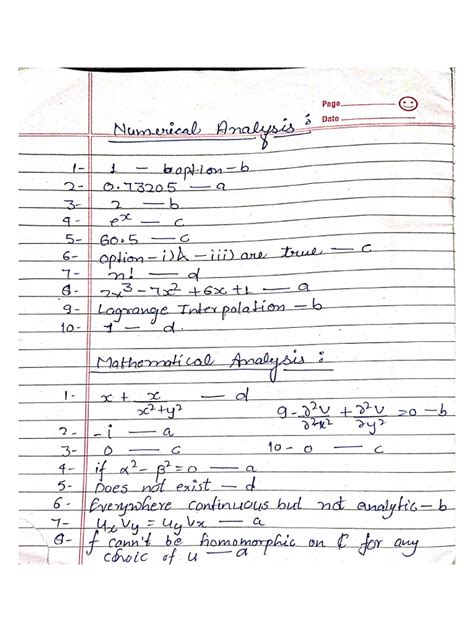 Page
Date
Numerical Analysis :
1- 1 — option-b
2- 0.73205 — a
3- 2 — b
4- eˣ — c
5- 60.5 — c
6- option-i) & -iii) are true — c
7- n! — d
8- 2x³-7x²+6x+1 — a
9- Lagrange Interpolation — b
10- 1 — d.
Mathematical Analysis :
1- x + x/(x²+y²) — d
9- ∂²V/∂x² + ∂²V/∂y² =0 — b
2- -i — a
3- 0 — c
10- 0 — c
4- if α²-β²=0 — a
5- Does not exist — d
6- Everywhere continuous but not analytic-b
7- UxVy = UyVx — a
8- f cann't be homomorphic on ℂ for any
choic of u — a